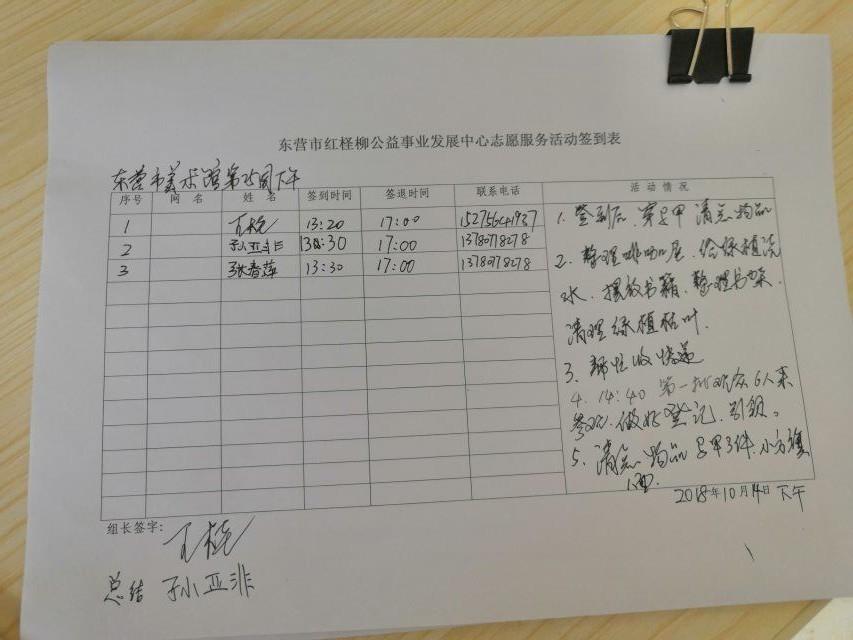 东营市红柽柳公益事业发展中心志愿服务活动签到表
东营市美术馆第25周下午
序号 网 名 姓 名 签到时间 签退时间 联系电话 活 动 情 况
1 13:20 17:00
2 孙亚非 13:30 17:00 13780778278
3 张春萍 13:30 17:00 13780778278
1. 签到后、穿马甲 清点物品
2. 整理咖啡屋、给绿植浇
水、摆放书籍、整理书架、
清理绿植枯叶.
3、帮忙收快递
4. 14:40 第一批观众6人来
参观、做好登记、引领。
5、清点物品 马甲3件、小方旗
1面.
2018年10月14日 下午
组长签字:
总结 孙亚非